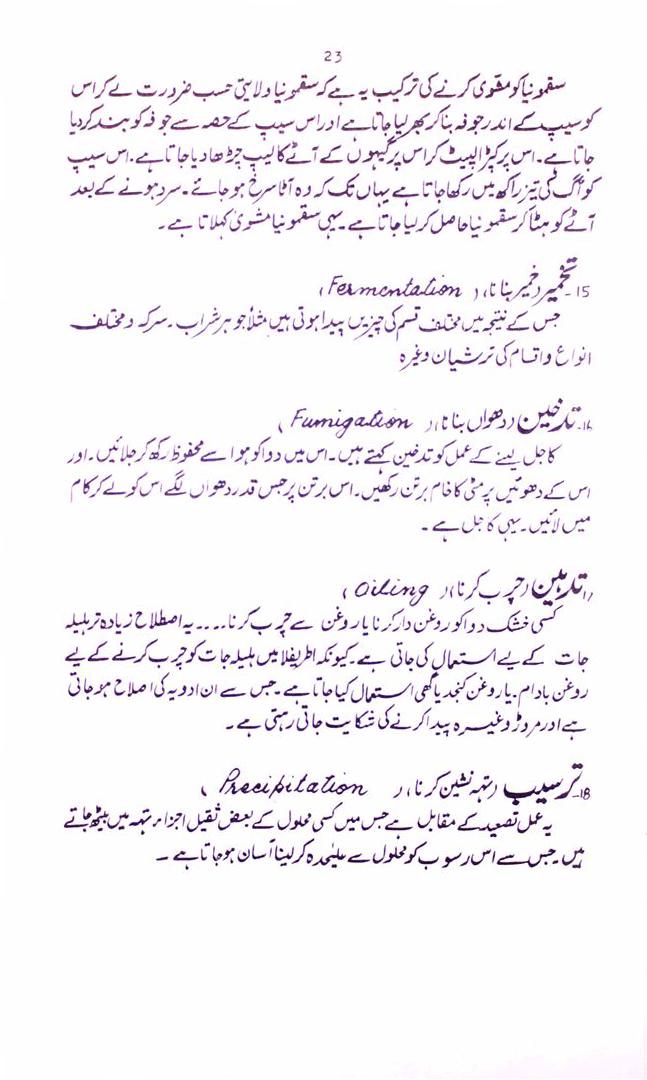 23
سقمونیا کو مشوی کرنے کی ترکیب یہ ہے کہ سقمونیا ولایتی حسب ضرورت لے کر اس
کو سیب کے اندر جوفہ بنا کر بھر لیا جاتا ہے اور اس سیب کے حصہ سے جوفہ کو بند کر دیا
جاتا ہے۔ اس پر کپڑا لپیٹ کر اس پر گیہوں کے آٹے کا لیپ چڑھا دیا جاتا ہے۔ اس سیب
کو آگ کی تیز راکھ میں رکھا جاتا ہے یہاں تک کہ وہ آٹا سرخ ہو جائے۔ سرد ہونے کے بعد
آٹے کو ہٹا کر سقمونیا حاصل کر لیا جاتا ہے۔ یہی سقمونیا مشوی کہلاتا ہے۔
15۔ تخمیر (خمیر بنانا) (Fermentation)
جس کے نتیجہ میں مختلف قسم کی چیزیں پیدا ہوتی ہیں مثلاً جوہر شراب۔ سرکہ و مختلف
انواع و اقسام کی ترشیاں وغیرہ
16۔ تدخین (دھواں بنانا) (Fumigation)
کاجل لینے کے عمل کو تدخین کہتے ہیں۔ اس میں دوا کو ہوا سے محفوظ رکھ کر جلائیں۔ اور
اس کے دھوئیں پر مٹی کا خام برتن رکھیں۔ اس برتن پر جس قدر دھواں لگے اس کو لے کر کام
میں لائیں۔ یہی کاجل ہے۔
17 تدہین (چرب کرنا) (Oiling)
کسی خشک دوا کو روغن دار کرنا یا روغن سے چرب کرنا۔۔۔۔ یہ اصطلاح زیادہ تر ہلیلہ
جات کے لیے استعمال کی جاتی ہے۔ کیونکہ اطریفل میں ہلیلہ جات کو چرب کرنے کے لیے
روغن بادام۔ یا روغن کنجد یا گھی استعمال کیا جاتا ہے۔ جس سے ان ادویہ کی اصلاح ہو جاتی
ہے اور مروڑ وغیرہ پیدا کرنے کی شکایت جاتی رہتی ہے۔
18۔ ترسیب (تہہ نشین کرنا) (Precipitation)
یہ عمل تصعید کے مقابل ہے جس میں کسی محلول کے بعض ثقیل اجزاء تہہ میں بیٹھ جاتے
ہیں۔ جس سے اس رسوب کو محلول سے علیٰحدہ کر لینا آسان ہو جاتا ہے۔